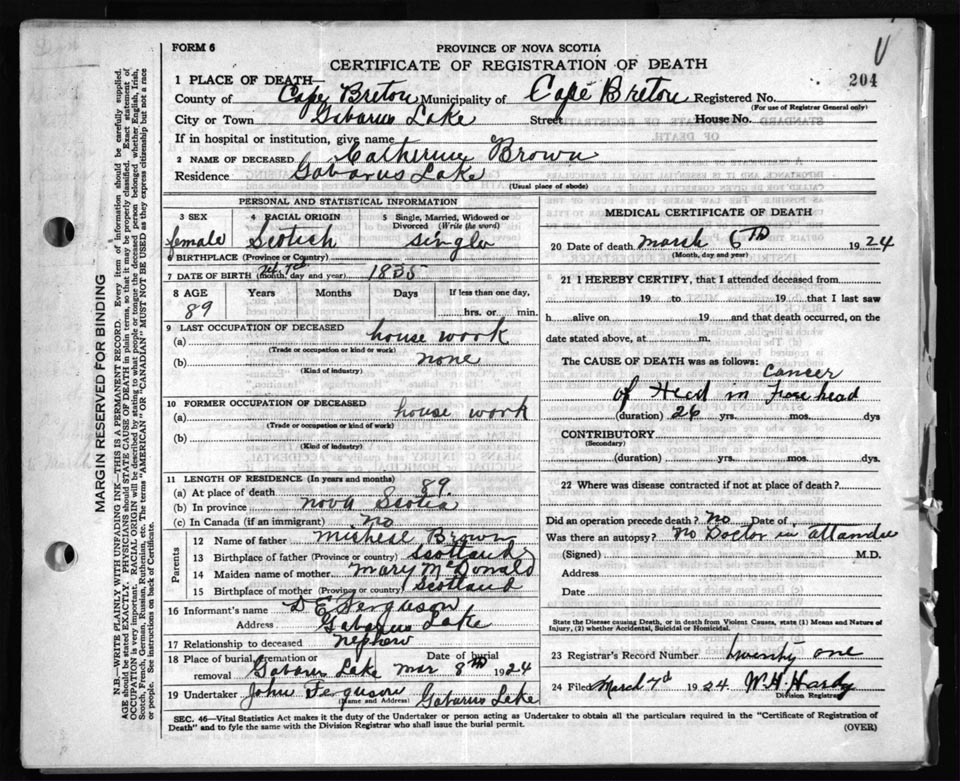 FORM 6
PROVINCE OF NOVA SCOTIA
CERTIFICATE OF REGISTRATION OF DEATH
204
1 PLACE OF DEATH—
County of Cape Breton Municipality of Cape Breton Registered No.
(For use of Registrar General only)
City or Town Gabarus Lake Street House No.
If in hospital or institution, give name
2 NAME OF DECEASED Catherine Brown
Residence Gabarus Lake
(Usual place of abode)
PERSONAL AND STATISTICAL INFORMATION
3 SEX female
4 RACIAL ORIGIN Scotish
5 Single, Married, Widowed or Divorced (Write the word) single
6 BIRTHPLACE (Province or Country)
7 DATE OF BIRTH (Month, day and year) 1835
8 AGE Years Months Days If less than one day,
89 hrs. or min.
9 LAST OCCUPATION OF DECEASED
(a) house work
(Trade or occupation or kind or work)
(b) none
(Kind of industry)
10 FORMER OCCUPATION OF DECEASED
(a) house work
(Trade or occupation or kind of work)
(b)
(Kind of industry)
11 LENGTH OF RESIDENCE (In years and months)
(a) At place of death 89.
(b) In province Nova Scotia
(c) In Canada (if an immigrant) No
Parents
12 Name of father Mishese Brown
13 Birthplace of father (Province or country) Scotland
14 Maiden name of mother Mary McDonald
15 Birthplace of mother (Province or country) Scotland
16 Informant's name D E Ferguson
Address Gabarus Lake
17 Relationship to deceased nephow
18 Place of burial, cremation or removal Gabarus Lake Date of burial Mar 8th 1924
19 Undertaker John Ferguson Gabarus Lake
(Name and Address)
MEDICAL CERTIFICATE OF DEATH
20 Date of death March 6TH 1924
(Month, day and year)
21 I HEREBY CERTIFY, that I attended deceased from
19 to 19 that I last saw
h alive on 19 and that death occurred, on the
date stated above, at m.
The CAUSE OF DEATH was as follows: Cancer
of Heed in Fore head
(duration) 26 yrs. mos. dys
CONTRIBUTORY
(Secondary)
(duration) yrs. mos. dys.
22 Where was disease contracted if not at place of death?
Did an operation precede death? No Date of
Was there an autopsy? No Doctor in attandee
(Signed) M.D.
Address
Date
State the Disease causing Death, or in death from Violent Causes, state (1) Means and Nature of
Injury, (2) whether Accidental, Suicidal or Homicidal.
23 Registrar's Record Number twenty one
24 Filed March 7th 1924 W. H. Hardy
Division Registrar
SEC. 46—Vital Statistics Act makes it the duty of the Undertaker or person acting as Undertaker to obtain all the particulars required in the "Certificate of Registration of
Death" and to fyle the same with the Division Registrar who shall issue the burial permit. (OVER)
MARGIN RESERVED FOR BINDING
N.B.—WRITE PLAINLY WITH UNFADING INK—THIS IS A PERMANENT RECORD. Every item of information should be carefully supplied.
AGE should be stated EXACTLY. PHYSICIANS should STATE CAUSE OF DEATH in plain terms, so that it may be properly classified. Exact statement of
OCCUPATION is very important. RACIAL ORIGIN will be described by stating to what people or tongue the deceased person belonged whether English, Irish,
Scotch, French, German, Russian, Ruthenian, etc. The terms "AMERICAN" OR "CANADIAN" MUST NOT BE USED as they express citizenship but not a race
or people. See instructions on back of Certificate.